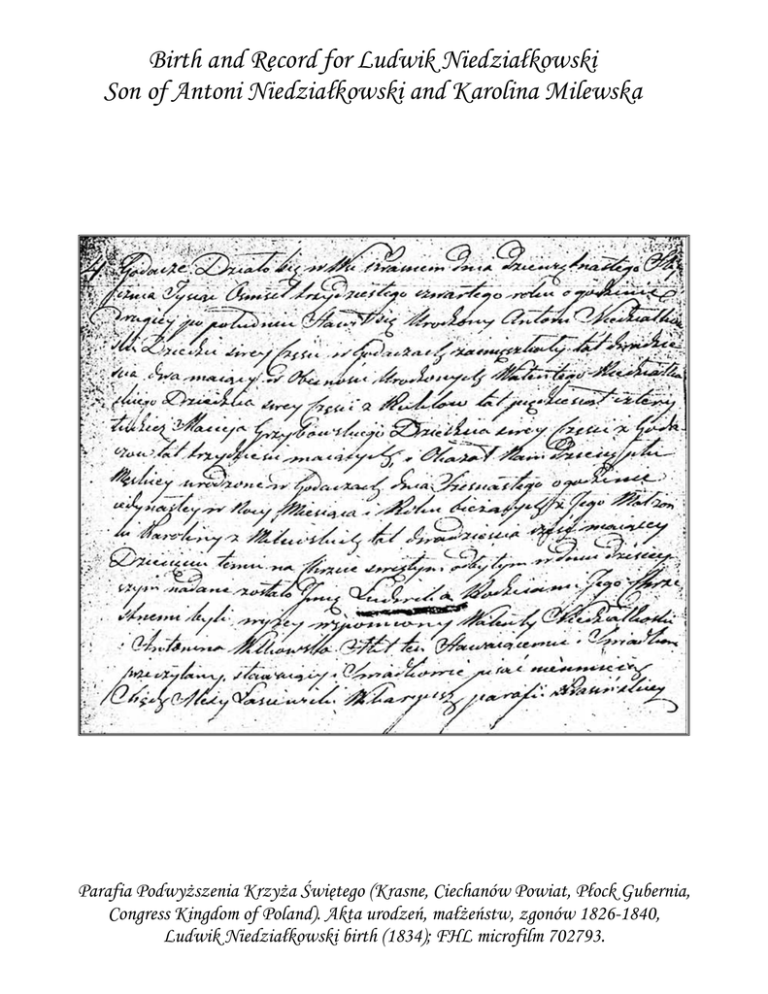 Birth and Record for Ludwik Niedziałkowski
Son of Antoni Niedziałkowski and Karolina Milewska
4. Godacze. Działo się w Wsi Krasnem dnia dziewiętnastego Sty
cznia Tysiąc Ośmset trzydziestego czwartego roku o godzinie
drugiey po południu Stawił się Urodzony Antoni Niedziałkow
ski Dziedzic swey Części w Godaczach zamieszkały lat dwadzie
ścia dwa maiący w Obecności Urodzonych Walentego Niedziałko
skiego Dziedzica swey części z lat pięćdziesiąt cztery
tudzież Macieja Grzybowskiego Dziedzica swey Części z Goda
czow lat trzydzieści maiących i Okazał Nam Dziecię płci
Męskiey urodzone w Godaczach dnia Szesnastego o godzinie
iedynastey w Nocy Miesiąca i Roku bieżących z Jego Małżon
ki Karoliny z Milewskich lat dwadzieścia maiącey
Dziecięciu temu na Chrzcie świętym odbytym w dniu dzisiey
szym nadane zostało Jmię Ludwik a Rodzicami Jego Chrze
stnemi byli wyżey wspomniony Walenty Niedziałkoski
i Antonina Akt ten Stawaiącemu i Świadkom
przeczytany, stawaiący i Świadkowie pisać nieumieią
Xiądz Parafii Krasińskiey
Parafia Podwyższenia Krzyża Świętego (Krasne, Ciechanów Powiat, Płock Gubernia,
Congress Kingdom of Poland). Akta urodzeń, małżeństw, zgonów 1826-1840,
Ludwik Niedziałkowski birth (1834); FHL microfilm 702793.